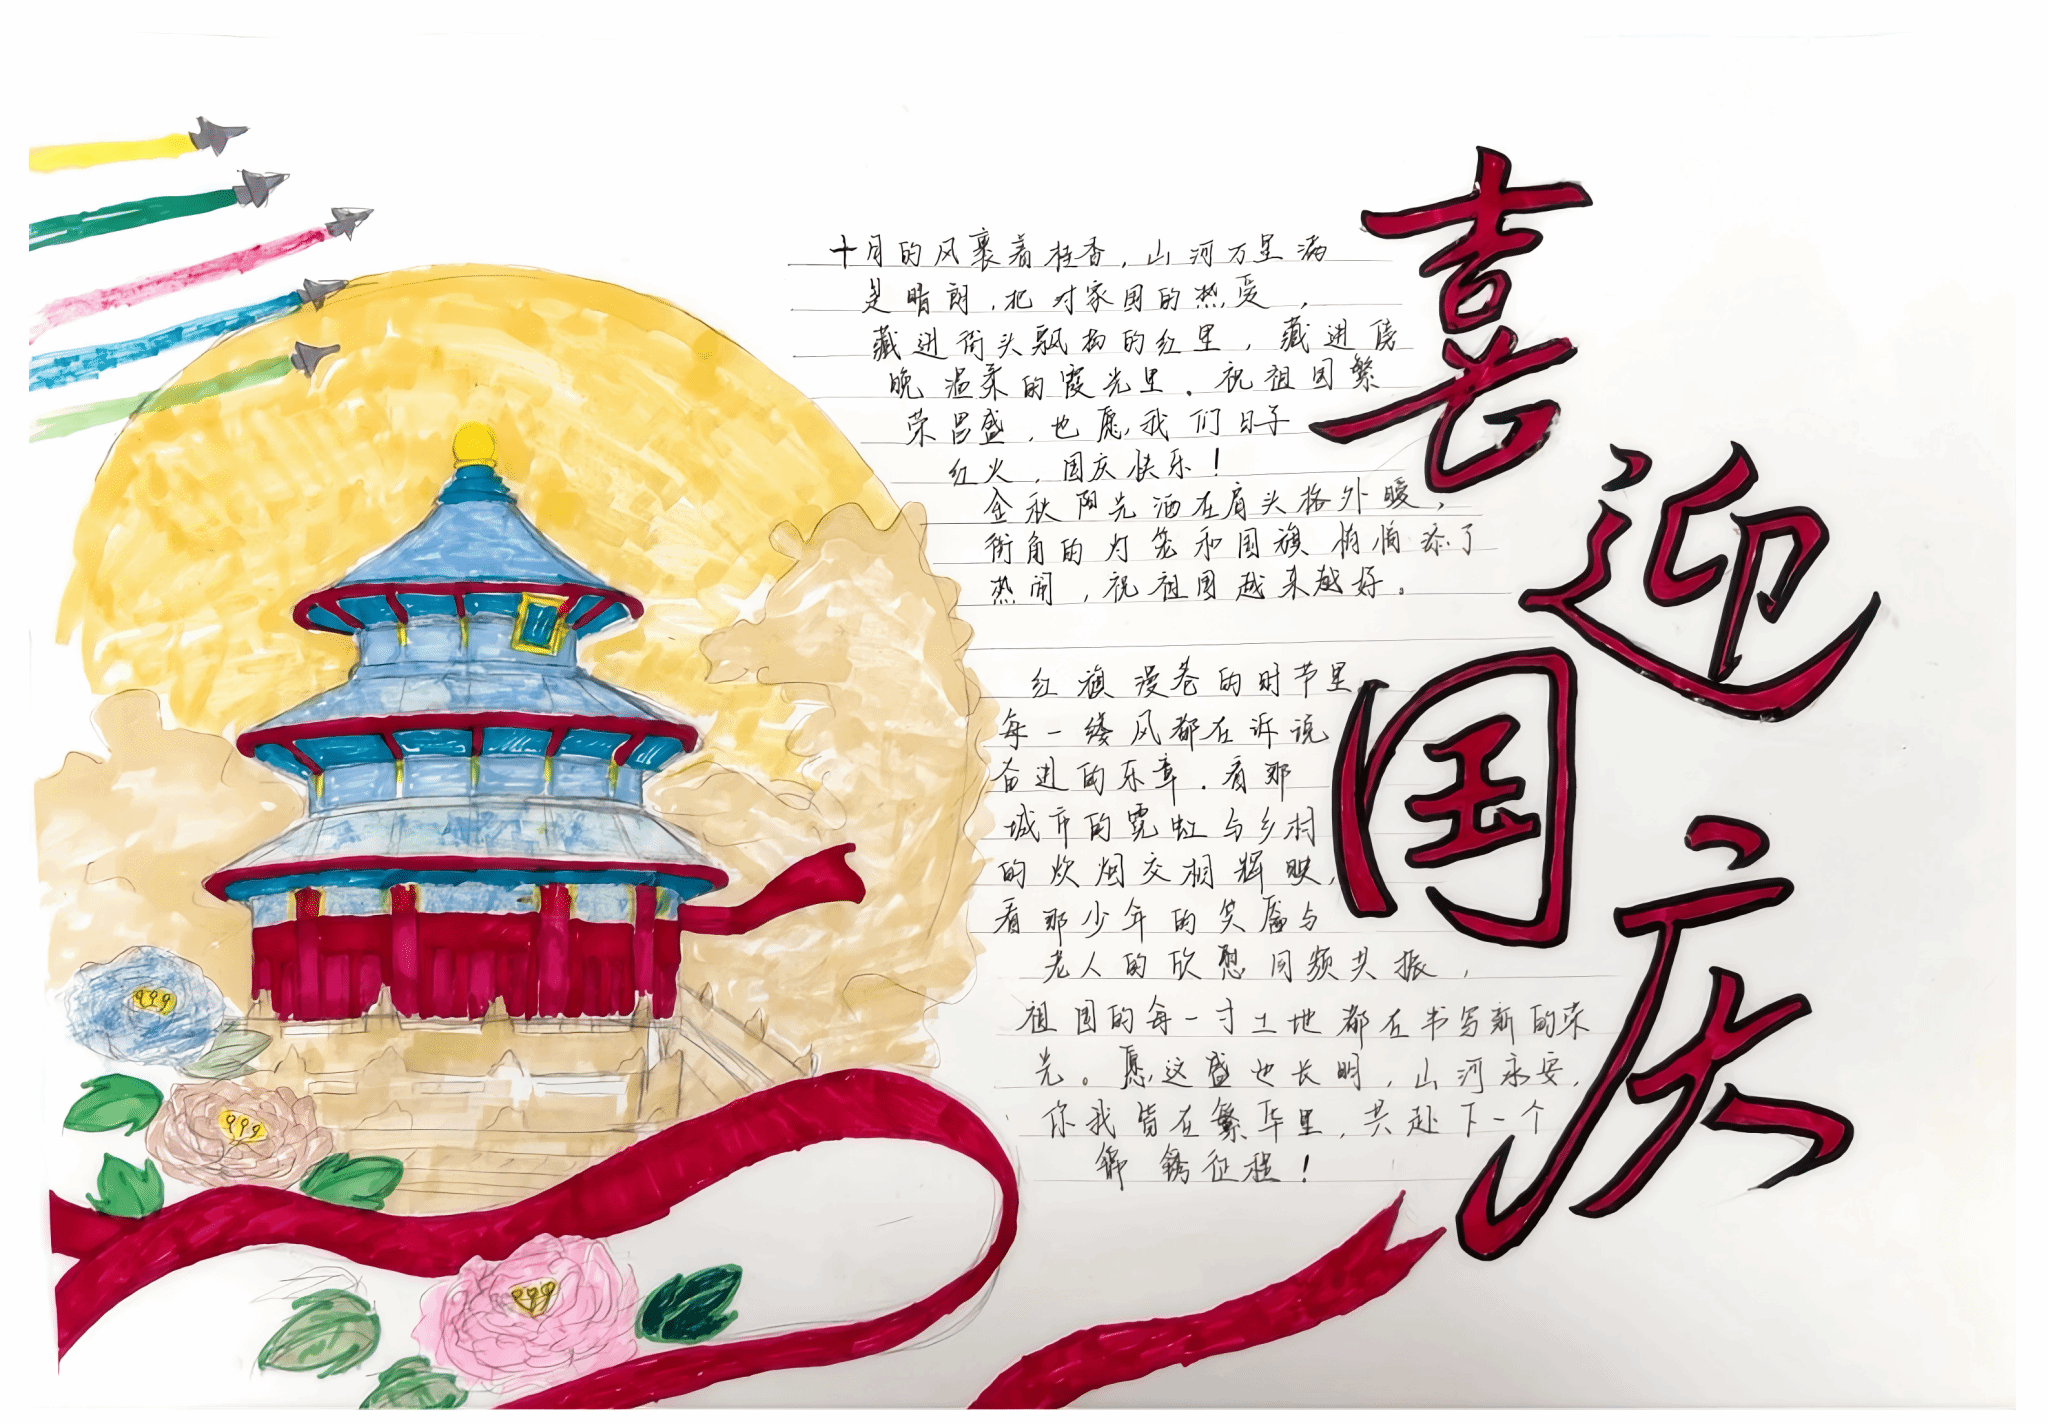 喜迎国庆
十月的风裹着桂香，山河万里满
是晴朗，把对家国的热爱，
藏进街头飘扬的红里，藏进傍
晚温柔的霞光里。祝祖国繁
荣昌盛，也愿我们日子
红火，国庆快乐！
金秋阳光洒在肩头格外暖，
街角的灯笼和国旗悄悄添了
热闹，祝祖国越来越好。
红旗漫卷的时节里
每一缕风都在诉说
奋进的乐章．看那
城市的霓虹与乡村
的炊烟交相辉映，
看那少年的笑靥与
老人的欣慰同频共振，
祖国的每一寸土地都在书写新的荣
光。愿这盛世长明，山河永安，
你我皆在繁华里，共赴下一个
锦绣征程！